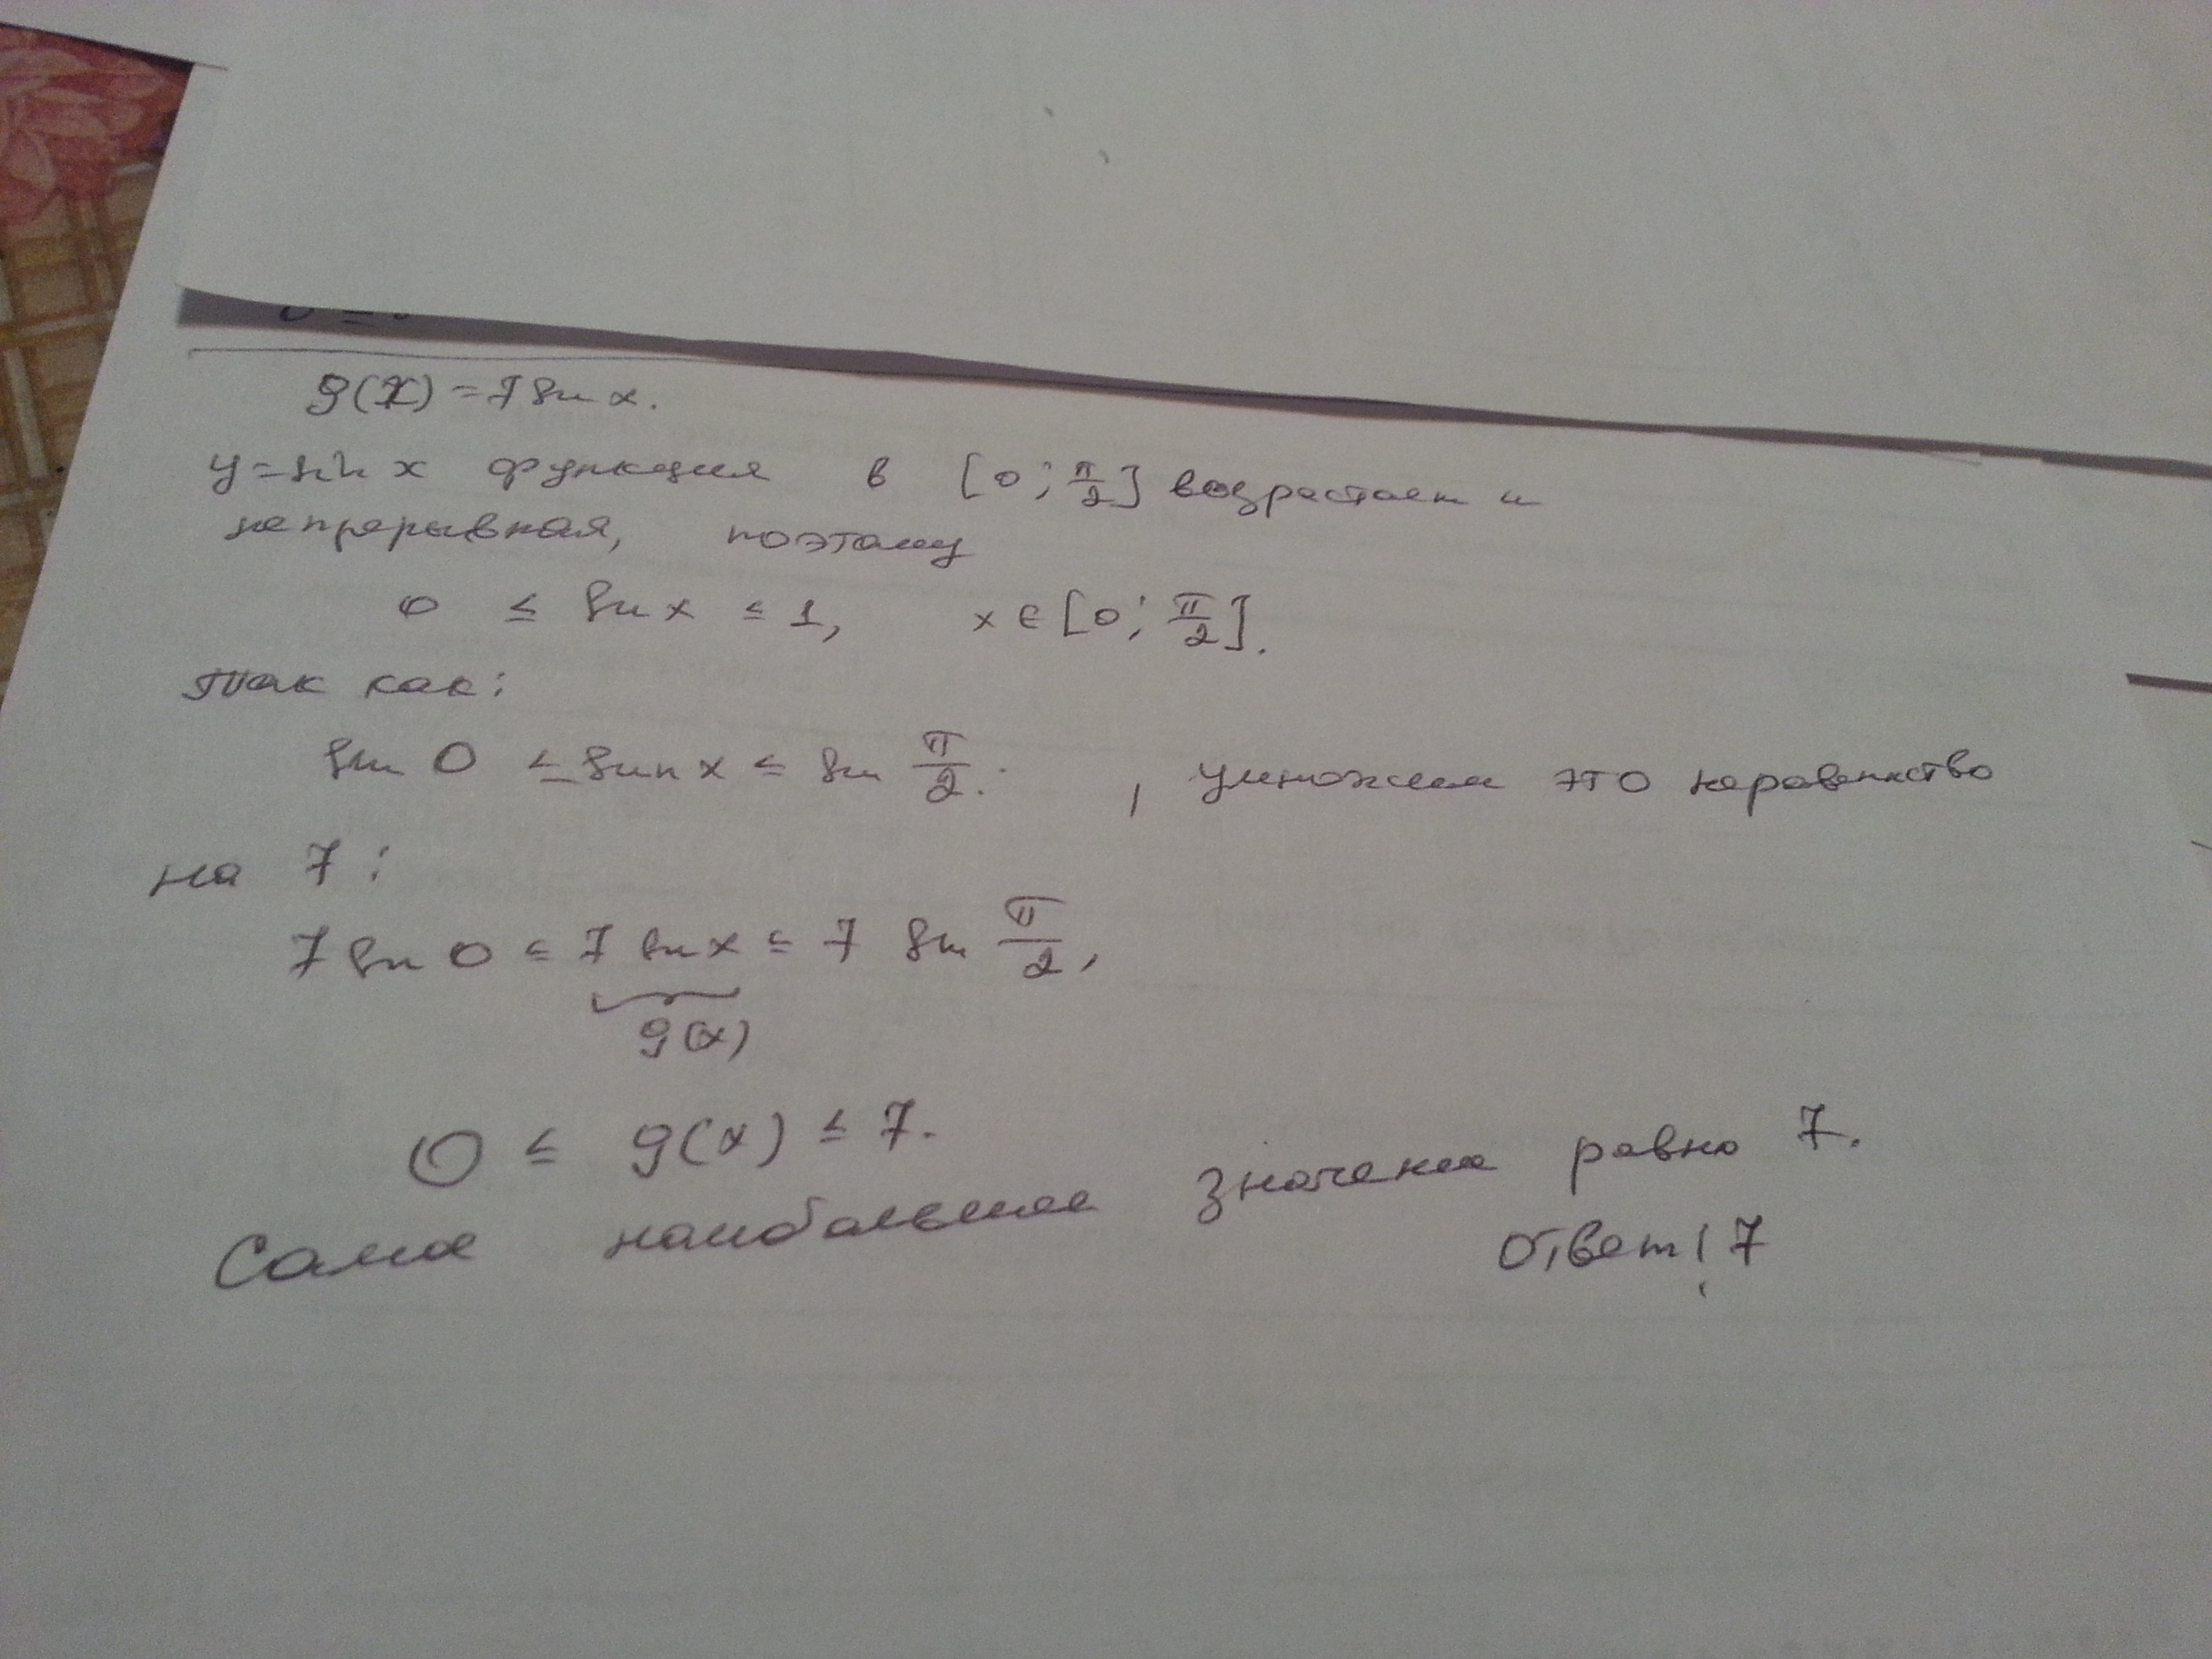 g(x) = 7 sin x.
y = sin x функция в [0; π/2] возрастает и
непрерывная, поэтому
0 ≤ sin x ≤ 1, x ∈ [0; π/2].
так как:
sin 0 ≤ sin x ≤ sin π/2. , умножим это неравенство
на 7:
7 sin 0 ≤ 7 sin x ≤ 7 sin π/2,
g(x)
0 ≤ g(x) ≤ 7.
Самое наибольшее значение равно 7.
Ответ: 7